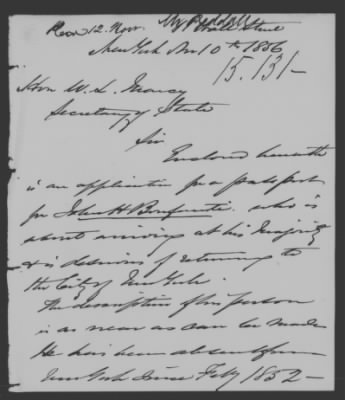 Recd 12. Nov.
Wall Street
New York Nov 10th 1856
15.131-
Hon W. L. Marcy
Secretary of State
Sir
Enclosed herewith
is an application for a passport
for John H Bonfante. who is
about arriving at his Majority
& is desirous of returning to
the City of New York.
The description of his person
is as near as can be made
He has been absent from
New York since Feby 1852-